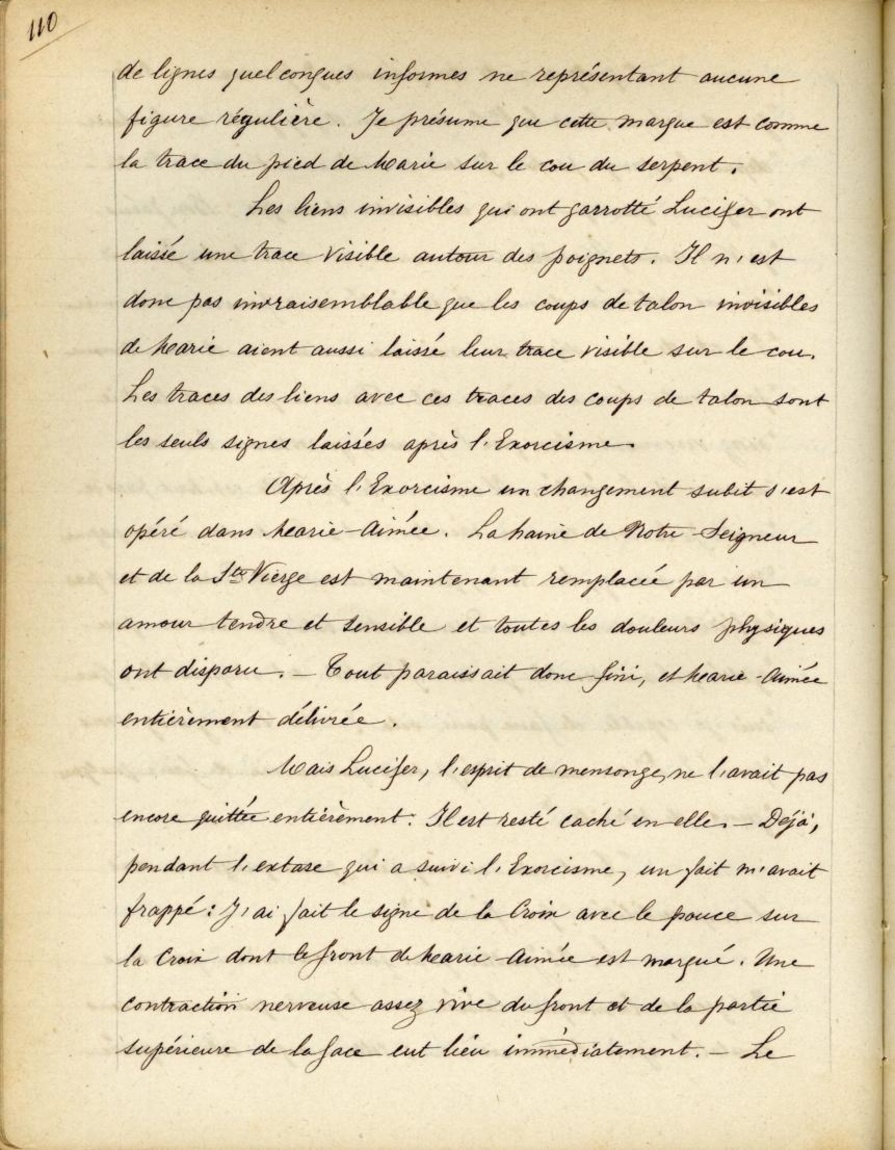 110
de lignes quelconques informes ne représentant aucune
figure régulière. Je présume que cette marque est comme
la trace du pied de Marie sur le cou du serpent.
Les liens invisibles qui ont garrotté Lucifer ont
laissé une trace visible autour des poignets. Il n'est
donc pas invraisemblable que les coups de talon invisibles
de Marie aient aussi laissé leur trace visible sur le cou.
Les traces des liens avec ces traces des coups de talon sont
les seuls signes laissés après l'Exorcisme.
Après l'Exorcisme un changement subit s'est
opéré dans Marie-Aimée. La haine de Notre-Seigneur
et de la Ste Vierge est maintenant remplacée par un
amour tendre et sensible et toutes les douleurs physiques
ont disparu. — Tout paraissait donc fini, et Marie-Aimée
entièrement délivrée.
Mais Lucifer, l'esprit de mensonge, ne l'avait pas
encore quittée entièrement. Il est resté caché en elle. — Déjà,
pendant l'extase qui a suivi l'Exorcisme, un fait m'avait
frappé : J'ai fait le signe de la Croix avec le pouce sur
la Croix dont le front de Marie-Aimée est marqué. Une
contraction nerveuse assez vive du front et de la partie
supérieure de la face eut lieu immédiatement. — Le